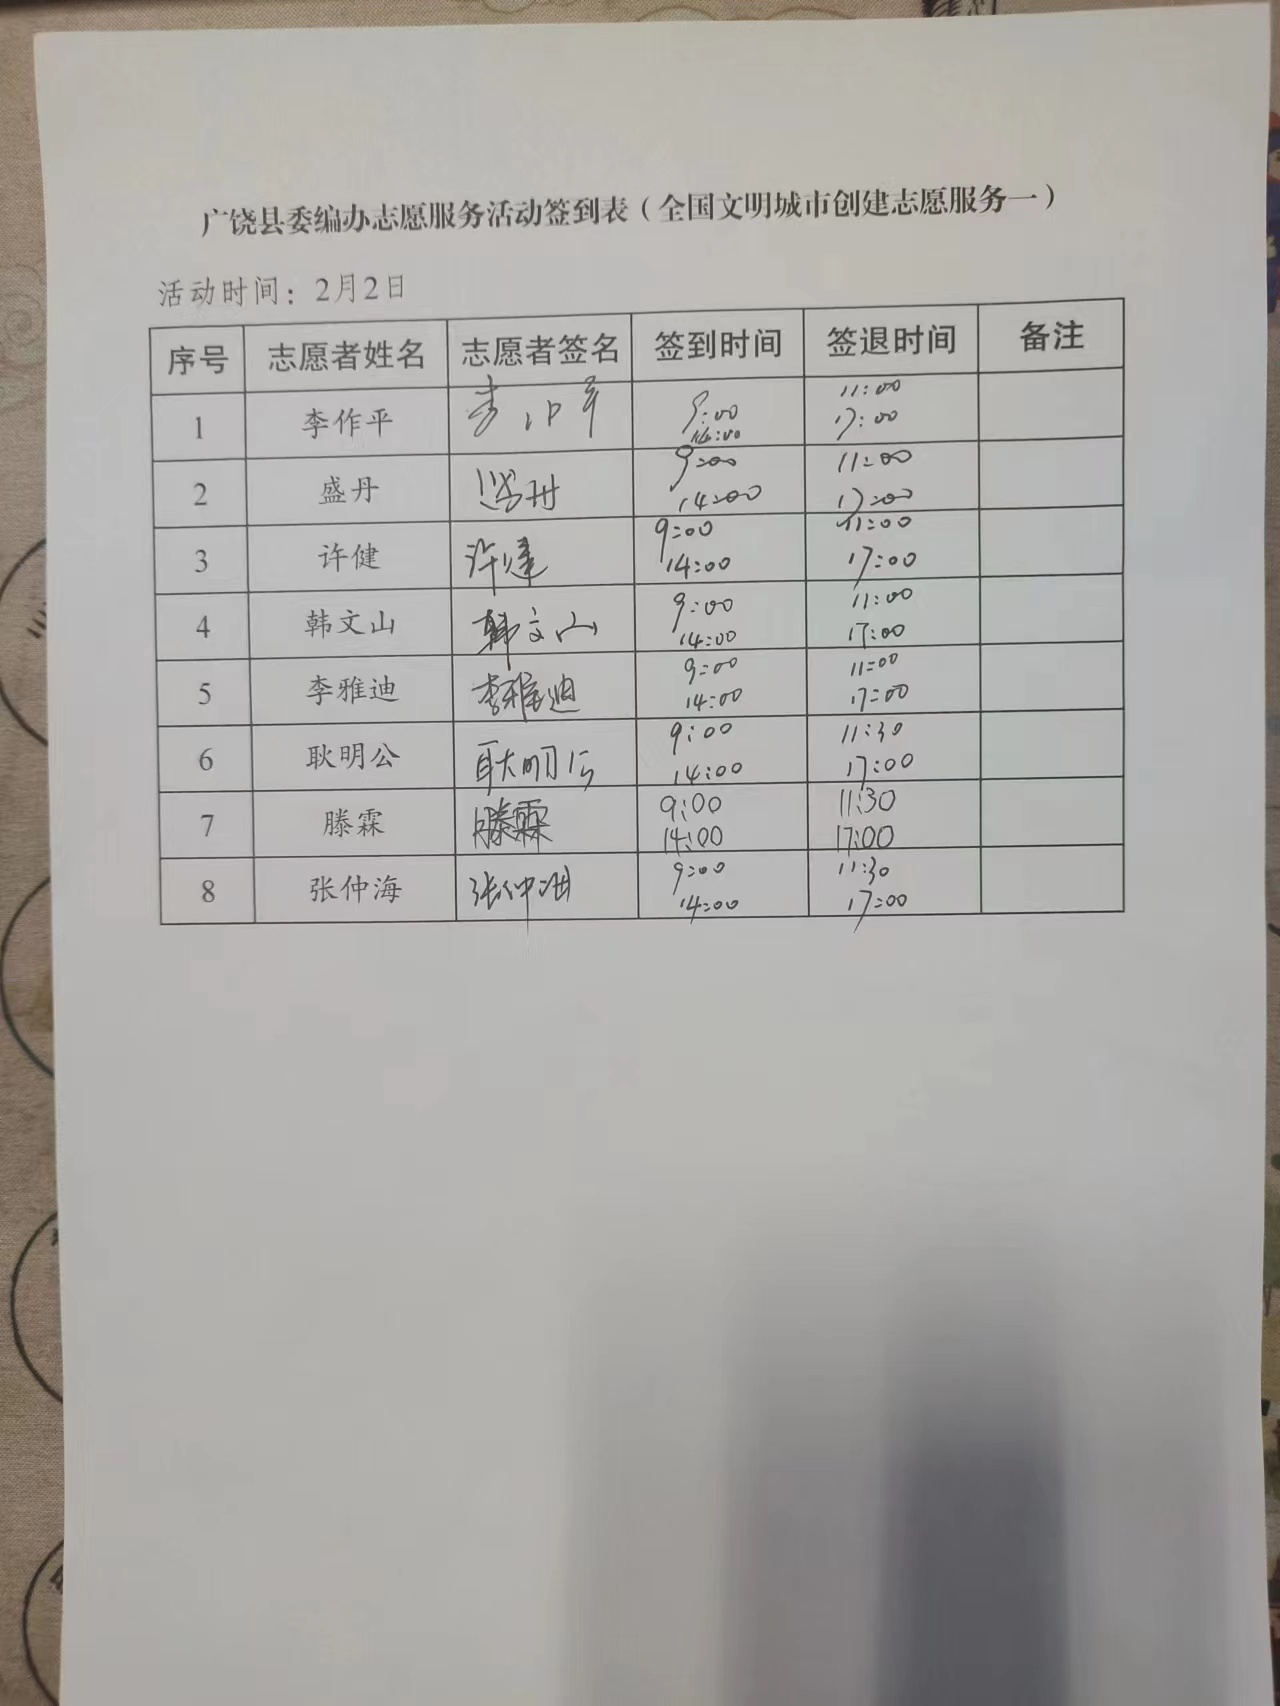 广饶县委编办志愿服务活动签到表（全国文明城市创建志愿服务一）
活动时间：2月2日
序号 志愿者姓名 志愿者签名 签到时间 签退时间 备注
1 李作平 9:00 11:00
14:00 17:00
2 盛丹 盛丹 9:00 11:00
14:00 17:00
3 许健 许健 9:00 11:00
14:00 17:00
4 韩文山 韩文山 9:00 11:00
14:00 17:00
5 李雅迪 李雅迪 9:00 11:00
14:00 17:00
6 耿明公 耿明公 9:00 11:30
14:00 17:00
7 滕霖 滕霖 9:00 11:30
14:00 17:00
8 张仲海 张仲海 9:00 11:30
14:00 17:00